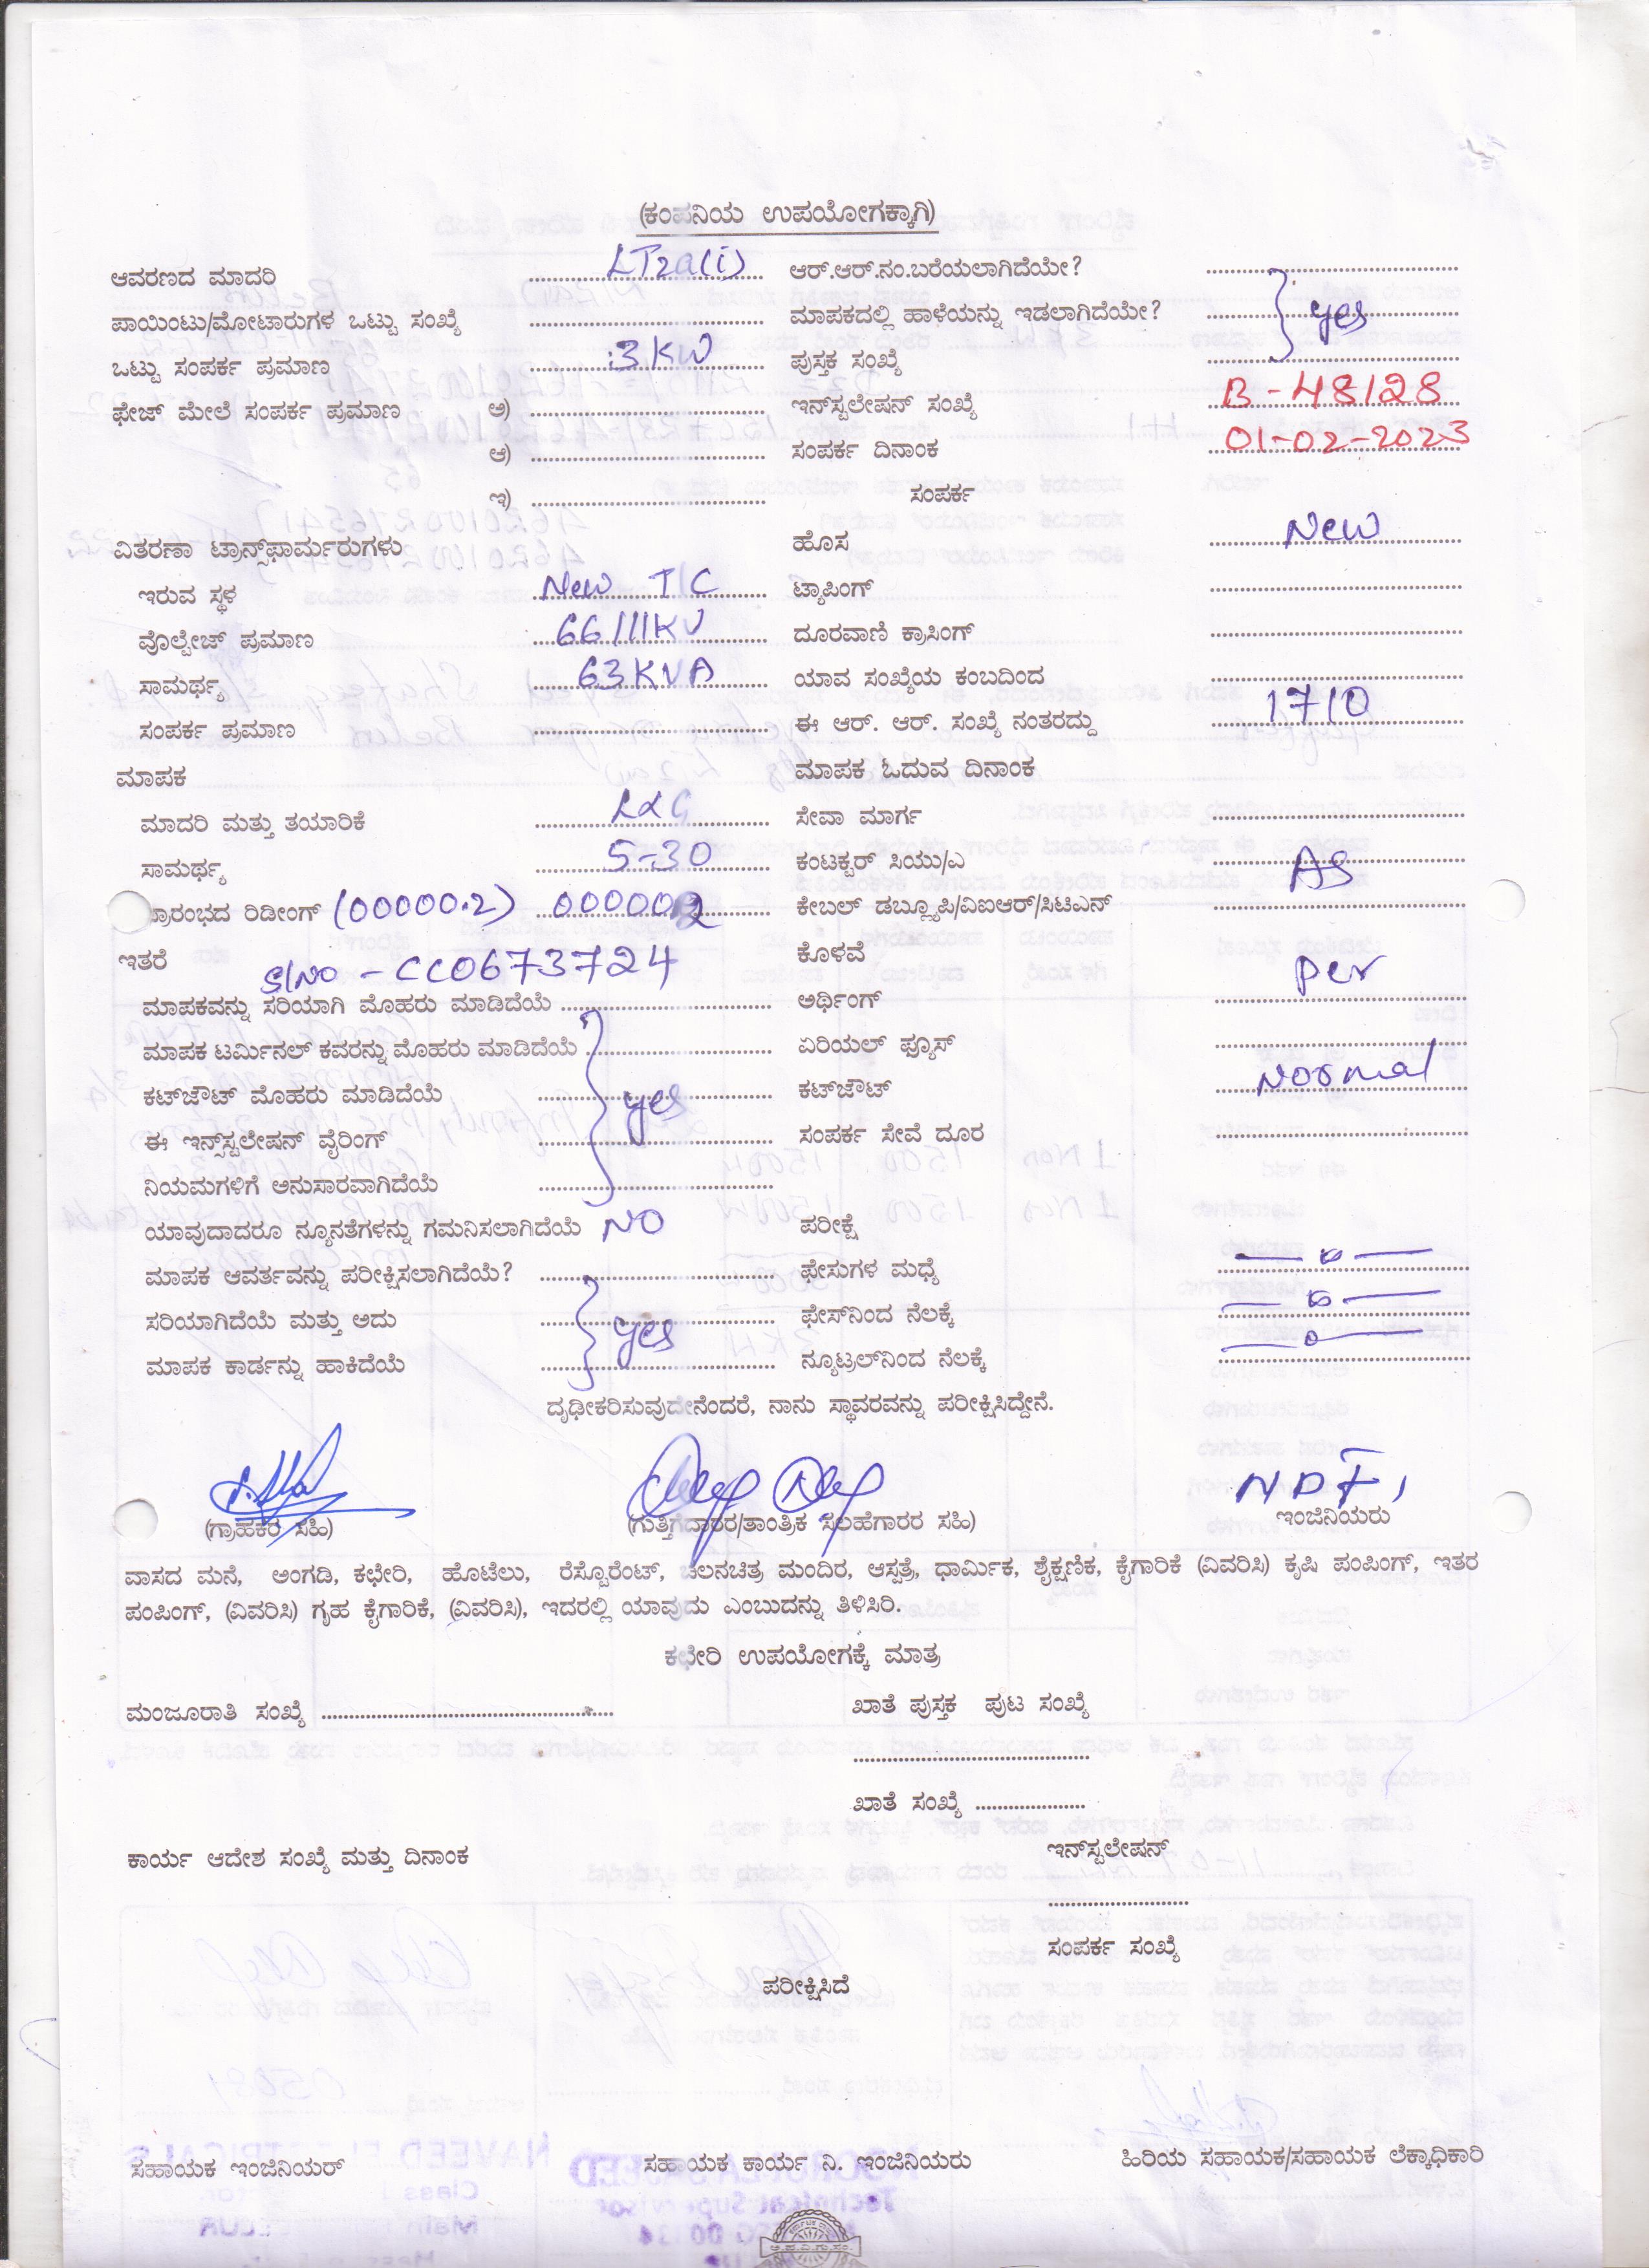 (ಕಂಪನಿಯ ಉಪಯೋಗಕ್ಕಾಗಿ)
ಆವರಣದ ಮಾದರಿ LT2a(i) ಆರ್.ಆರ್.ನಂ.ಬರೆಯಲಾಗಿದೆಯೇ?
ಪಾಯಿಂಟು/ಮೋಟಾರುಗಳ ಒಟ್ಟು ಸಂಖ್ಯೆ ಮಾಪಕದಲ್ಲಿ ಹಾಳೆಯನ್ನು ಇಡಲಾಗಿದೆಯೇ? yes
ಒಟ್ಟು ಸಂಪರ್ಕ ಪ್ರಮಾಣ 3KW ಪುಸ್ತಕ ಸಂಖ್ಯೆ
ಫೇಜ್ ಮೇಲೆ ಸಂಪರ್ಕ ಪ್ರಮಾಣ ಅ) ಇನ್‌ಸ್ಟಲೇಷನ್ ಸಂಖ್ಯೆ B-48128
ಆ) ಸಂಪರ್ಕ ದಿನಾಂಕ 01-02-2023
ಇ) ಸಂಪರ್ಕ
ವಿತರಣಾ ಟ್ರಾನ್ಸ್‌ಫಾರ್ಮರುಗಳು ಹೊಸ New
ಇರುವ ಸ್ಥಳ New T/C ಟ್ಯಾಪಿಂಗ್
ವೊಲ್ಟೇಜ್ ಪ್ರಮಾಣ 66/11KV ದೂರವಾಣಿ ಕ್ರಾಸಿಂಗ್
ಸಾಮರ್ಥ್ಯ 63KVA ಯಾವ ಸಂಖ್ಯೆಯ ಕಂಬದಿಂದ
ಸಂಪರ್ಕ ಪ್ರಮಾಣ ಈ ಆರ್. ಆರ್. ಸಂಖ್ಯೆ ನಂತರದ್ದು 1710
ಮಾಪಕ ಮಾಪಕ ಓದುವ ದಿನಾಂಕ
ಮಾದರಿ ಮತ್ತು ತಯಾರಿಕೆ L&G ಸೇವಾ ಮಾರ್ಗ
ಸಾಮರ್ಥ್ಯ 5-30 ಕಂಟಕ್ಟರ್ ಸಿಯು/ಎ
ಪ್ರಾರಂಭದ ರಿಡೀಂಗ್ (00000.2) 000002 ಕೇಬಲ್ ಡಬ್ಲ್ಯೂಪಿ/ವಿಐಆರ್/ಸಿಟಿಎಸ್ As
ಇತರೆ Sl No - CC0673724 ಕೊಳವೆ
ಮಾಪಕವನ್ನು ಸರಿಯಾಗಿ ಮೊಹರು ಮಾಡಿದೆಯೆ ಅರ್ಥಿಂಗ್ per
ಮಾಪಕ ಟರ್ಮಿನಲ್ ಕವರನ್ನು ಮೊಹರು ಮಾಡಿದೆಯೆ ಏರಿಯಲ್ ಫ್ಯೂಸ್
ಕಟ್‌ಔಟ್ ಮೊಹರು ಮಾಡಿದೆಯೆ yes ಕಟ್‌ಔಟ್ Normal
ಈ ಇನ್ಸ್‌ಸ್ಟಲೇಷನ್ ವೈರಿಂಗ್ ಸಂಪರ್ಕ ಸೇವೆ ದೂರ
ನಿಯಮಗಳಿಗೆ ಅನುಸಾರವಾಗಿದೆಯೆ
ಯಾವುದಾದರೂ ನ್ಯೂನತೆಗಳನ್ನು ಗಮನಿಸಲಾಗಿದೆಯೆ NO ಪರೀಕ್ಷೆ
ಮಾಪಕ ಆವರ್ತವನ್ನು ಪರೀಕ್ಷಿಸಲಾಗಿದೆಯೆ? ಫೇಸುಗಳ ಮಧ್ಯೆ
ಸರಿಯಾಗಿದೆಯೆ ಮತ್ತು ಅದು yes ಫೇಸ್‌ನಿಂದ ನೆಲಕ್ಕೆ
ಮಾಪಕ ಕಾರ್ಡನ್ನು ಹಾಕಿದೆಯೆ ನ್ಯೂಟ್ರಲ್‌ನಿಂದ ನೆಲಕ್ಕೆ
ದೃಢೀಕರಿಸುವುದೇನೆಂದರೆ, ನಾನು ಸ್ಥಾವರವನ್ನು ಪರೀಕ್ಷಿಸಿದ್ದೇನೆ.
(ಗ್ರಾಹಕರ ಸಹಿ) (ಗುತ್ತಿಗೆದಾರರ/ತಾಂತ್ರಿಕ ಸಲಹೆಗಾರರ ಸಹಿ) ಇಂಜಿನಿಯರು
ವಾಸದ ಮನೆ, ಅಂಗಡಿ, ಕಛೇರಿ, ಹೊಟೆಲು, ರೆಸ್ಟೊರೆಂಟ್, ಚಲನಚಿತ್ರ ಮಂದಿರ, ಆಸ್ಪತ್ರೆ, ಧಾರ್ಮಿಕ, ಶೈಕ್ಷಣಿಕ, ಕೈಗಾರಿಕೆ (ವಿವರಿಸಿ) ಕೃಷಿ ಪಂಪಿಂಗ್, ಇತರ
ಪಂಪಿಂಗ್, (ವಿವರಿಸಿ) ಗೃಹ ಕೈಗಾರಿಕೆ, (ವಿವರಿಸಿ), ಇದರಲ್ಲಿ ಯಾವುದು ಎಂಬುದನ್ನು ತಿಳಿಸಿರಿ.
ಕಛೇರಿ ಉಪಯೋಗಕ್ಕೆ ಮಾತ್ರ
ಮಂಜೂರಾತಿ ಸಂಖ್ಯೆ ಖಾತೆ ಪುಸ್ತಕ ಪುಟ ಸಂಖ್ಯೆ
ಖಾತೆ ಸಂಖ್ಯೆ
ಕಾರ್ಯ ಆದೇಶ ಸಂಖ್ಯೆ ಮತ್ತು ದಿನಾಂಕ ಇನ್‌ಸ್ಟಲೇಷನ್
ಸಂಪರ್ಕ ಸಂಖ್ಯೆ
ಪರೀಕ್ಷಿಸಿದೆ
ಸಹಾಯಕ ಇಂಜಿನಿಯರ್ ಸಹಾಯಕ ಕಾರ್ಯ ನಿ. ಇಂಜಿನಿಯರು ಹಿರಿಯ ಸಹಾಯಕ/ಸಹಾಯಕ ಲೆಕ್ಕಾಧಿಕಾರಿ